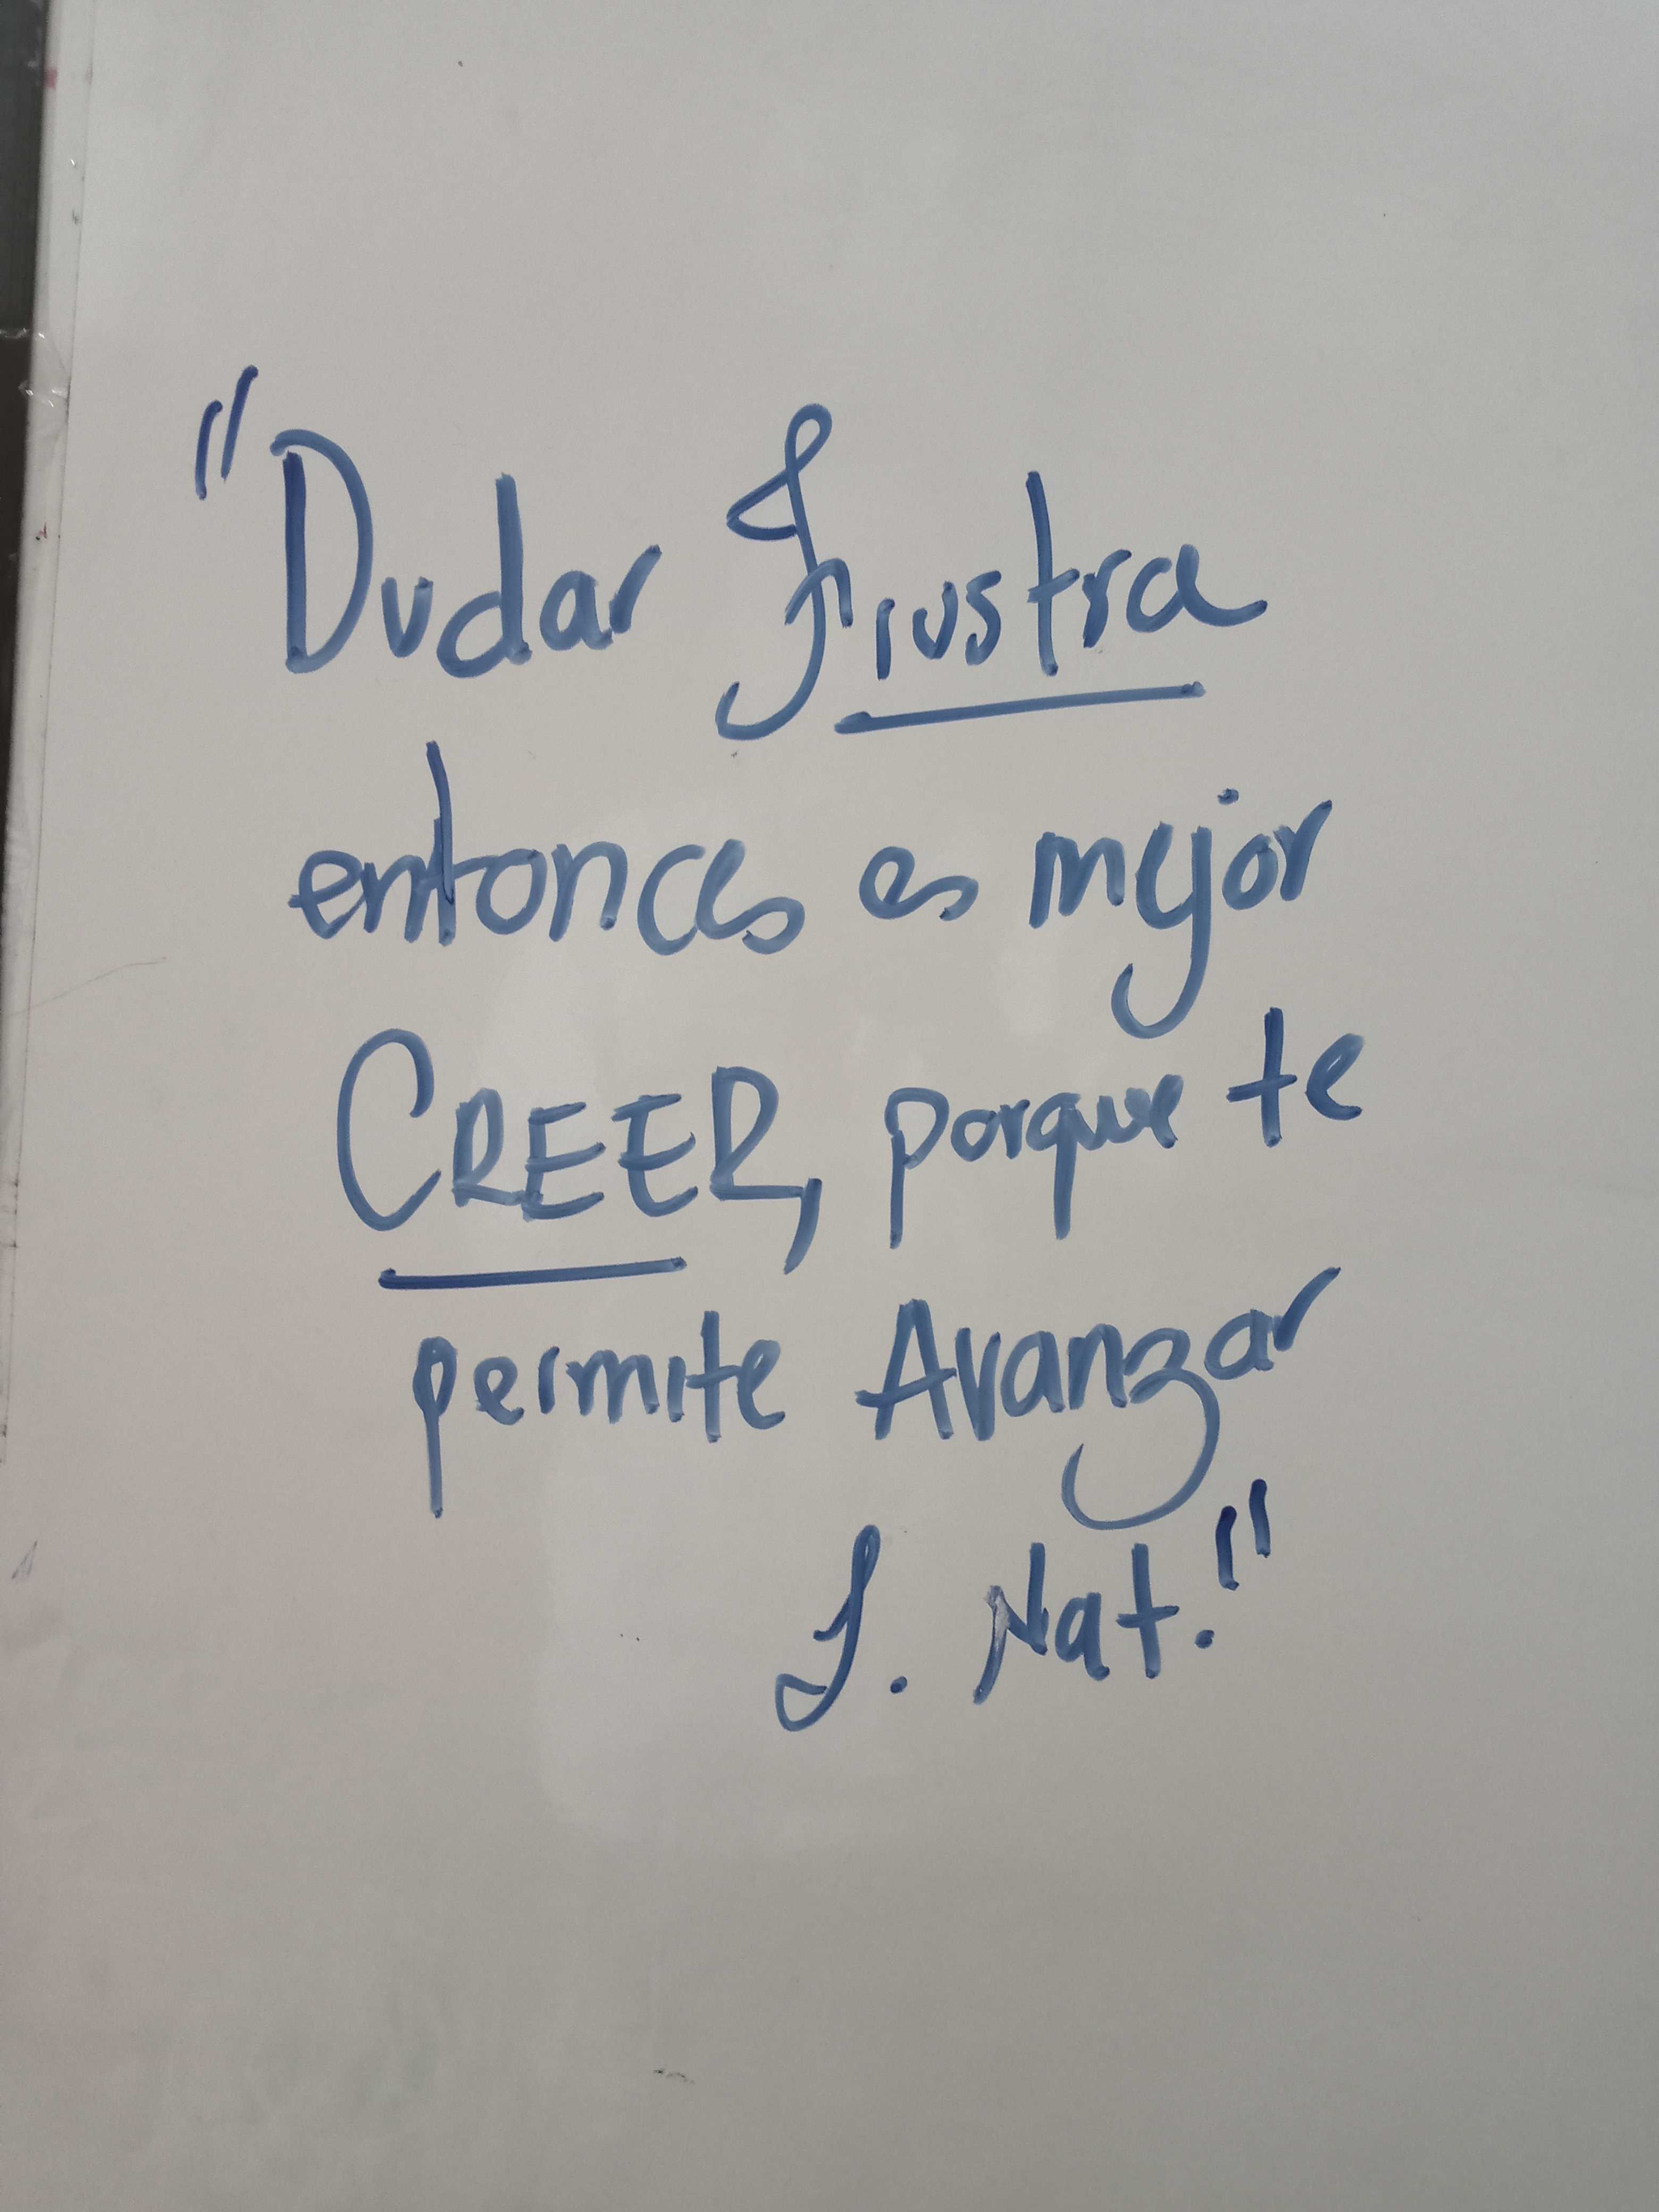 "Dudar Frustra
entonces es mejor
CREER, porque te
permite Avanzar
J. Nat."